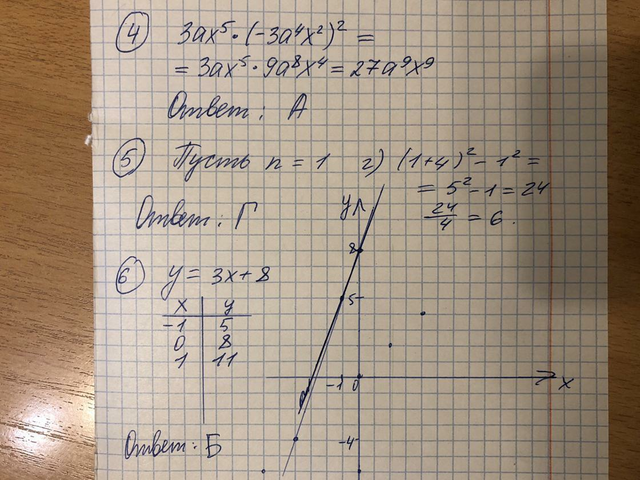 4 3ax⁵ · (-3a⁴x²)² =
= 3ax⁵ · 9a⁸x⁴ = 27a⁹x⁹
Ответ: А
5 Пусть n = 1 г) (1+4)² - 1² =
= 5² - 1 = 24
24/4 = 6.
Ответ: Г
6 y = 3x + 8
x y
-1 5
0 8
1 11
Ответ: Б
y
8
5
-1 0 x
-4